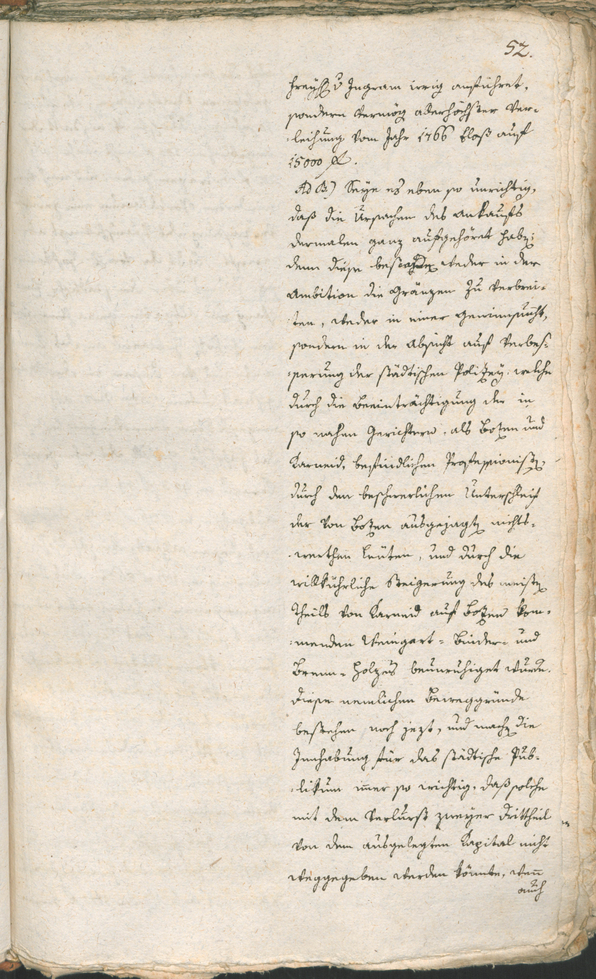 52.
Freyh: v Ingram irrig anführet,
sondern vermög allerhöchster Ver-
leihung vom Jahr 1766 bloß auf
15000 f.
Ad B) Seye es eben so unrichtig,
daß die Ursachen des Ankaufs
dermalen ganz aufgehört habe;
denn diese bestande weder in der
Ambition die Gränzen zu verbrei-
ten, weder in einer Gewinnsucht,
sondern in der Absicht auf Verbes-
serung der städtischen Polizey, welche
durch die Beeinträchtigung der in
so nahen Gerichtern, als Bozen und
Karneid, befindlichen Professionisten;
durch den beschwerlichen Unterschleif
der von Bozen ausgejagten nichts-
werthen Leuten, und durch die
willkührliche Steigerung des meisten
Theils von Karneid auf Bozen kom-
menden Weingart- Binder- und
Brenn-Holzes beunruhiget wurde.
Diese nemlichen Beweggründe
bestehen noch jezt, und machen die
Innhabung für das städtische Pub-
likum immer so wichtig, daß solche
mit dem Verlurst zweyer Drittheil
von dem ausgelegten Kapital nicht
weggegeben werden könnte, wenn
auch